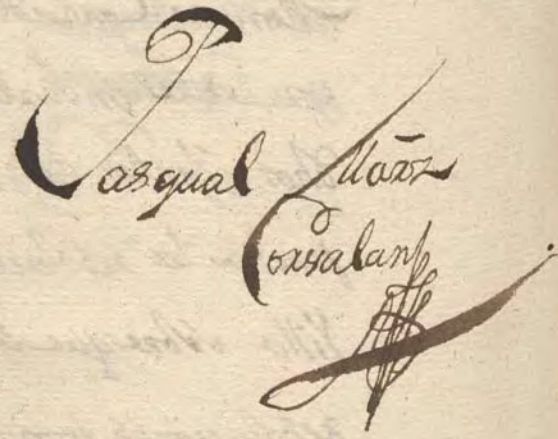 Pasqual Mãrz
Corvalan